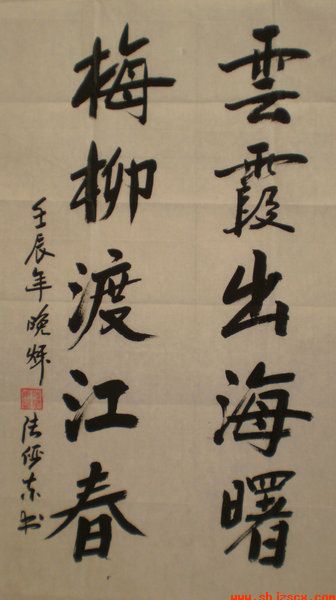 雲霞出海曙
梅柳渡江春
壬辰年晚
书
www.shjzscx.com